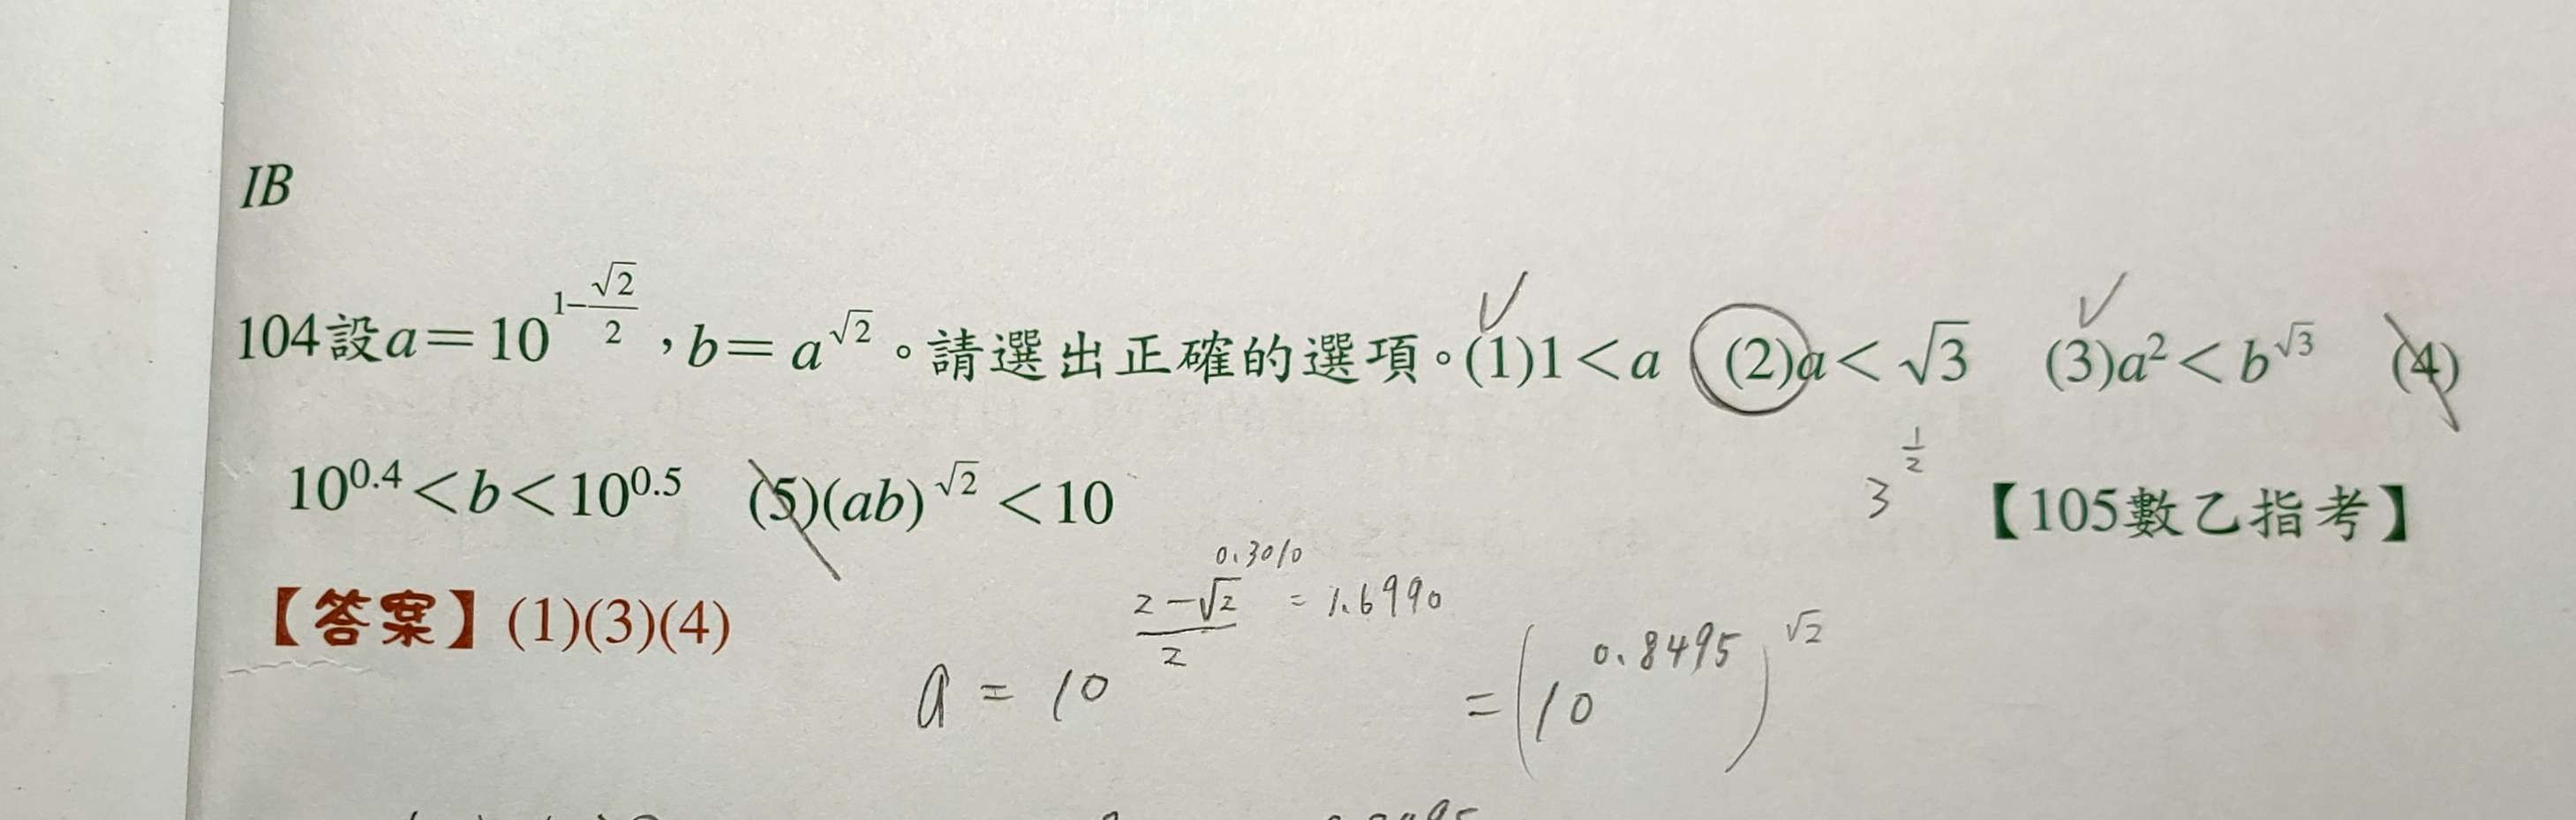 IB
104設a=10^{1-\frac{\sqrt{2}}{2}},b=a^{\sqrt{2}}。請選出正確的選項。(1)1<a (2)a<\sqrt{3} (3)a^2<b^{\sqrt{3}} (4)
10^{0.4}<b<10^{0.5} (5)(ab)^{\sqrt{2}}<10
3^{\frac{1}{2}}
【105數乙指考】
【答案】(1)(3)(4)
0.3010
a = 10^{\frac{2-\sqrt{2}}{2}} = 1.6990
= (10^{0.8495})^{\sqrt{2}}